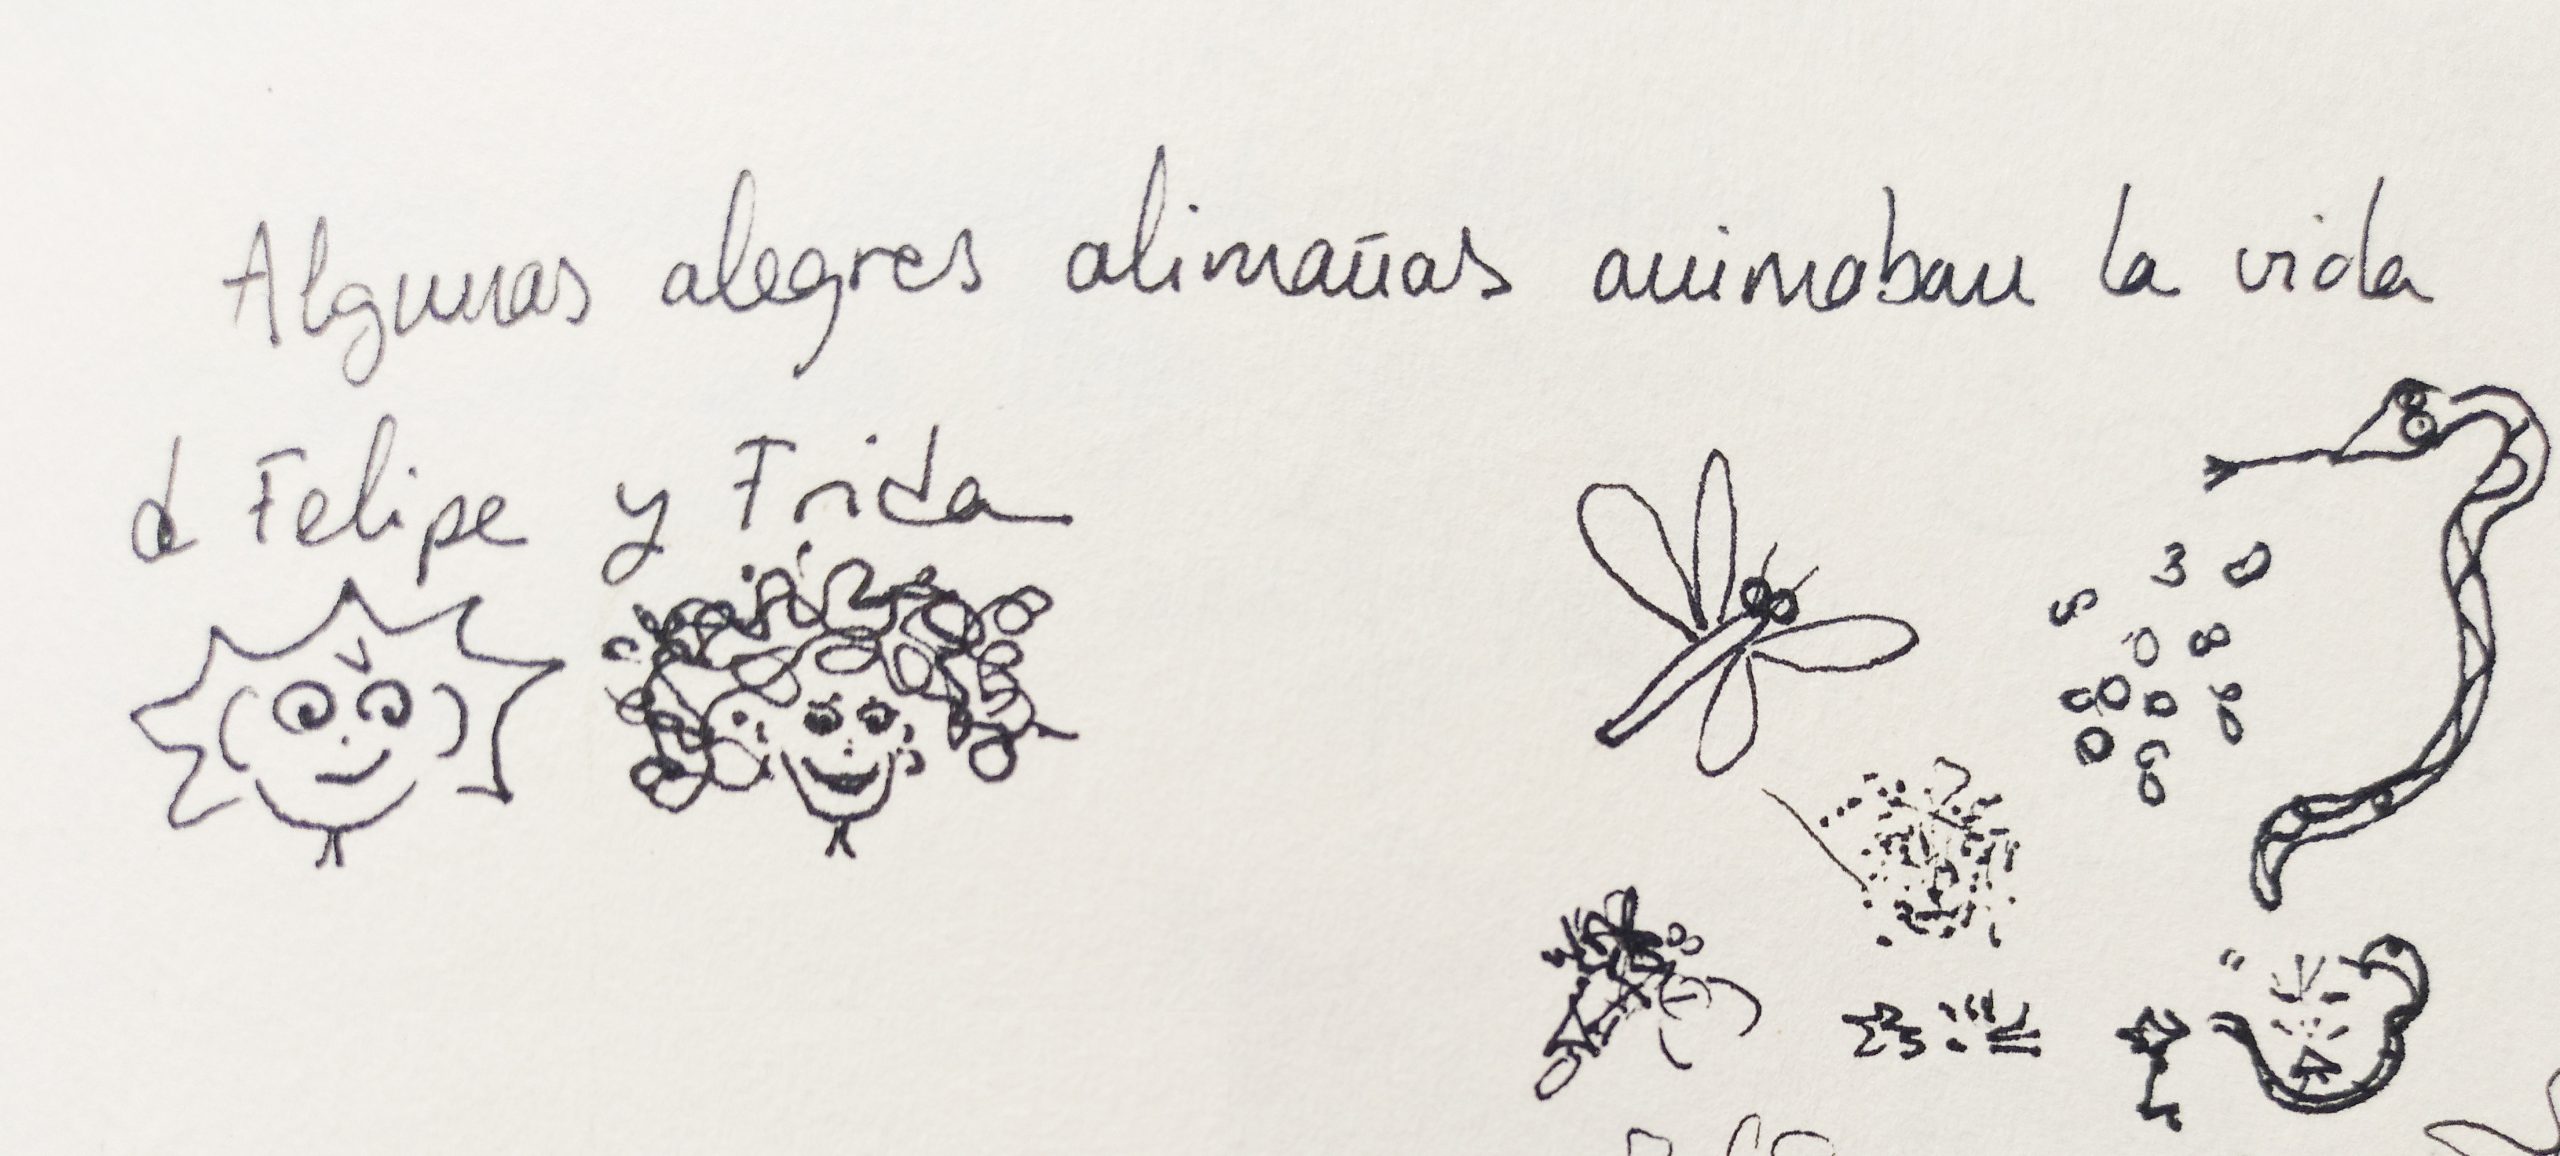 Algunas alegres alimañas animaban la vida
d Felipe y Frida